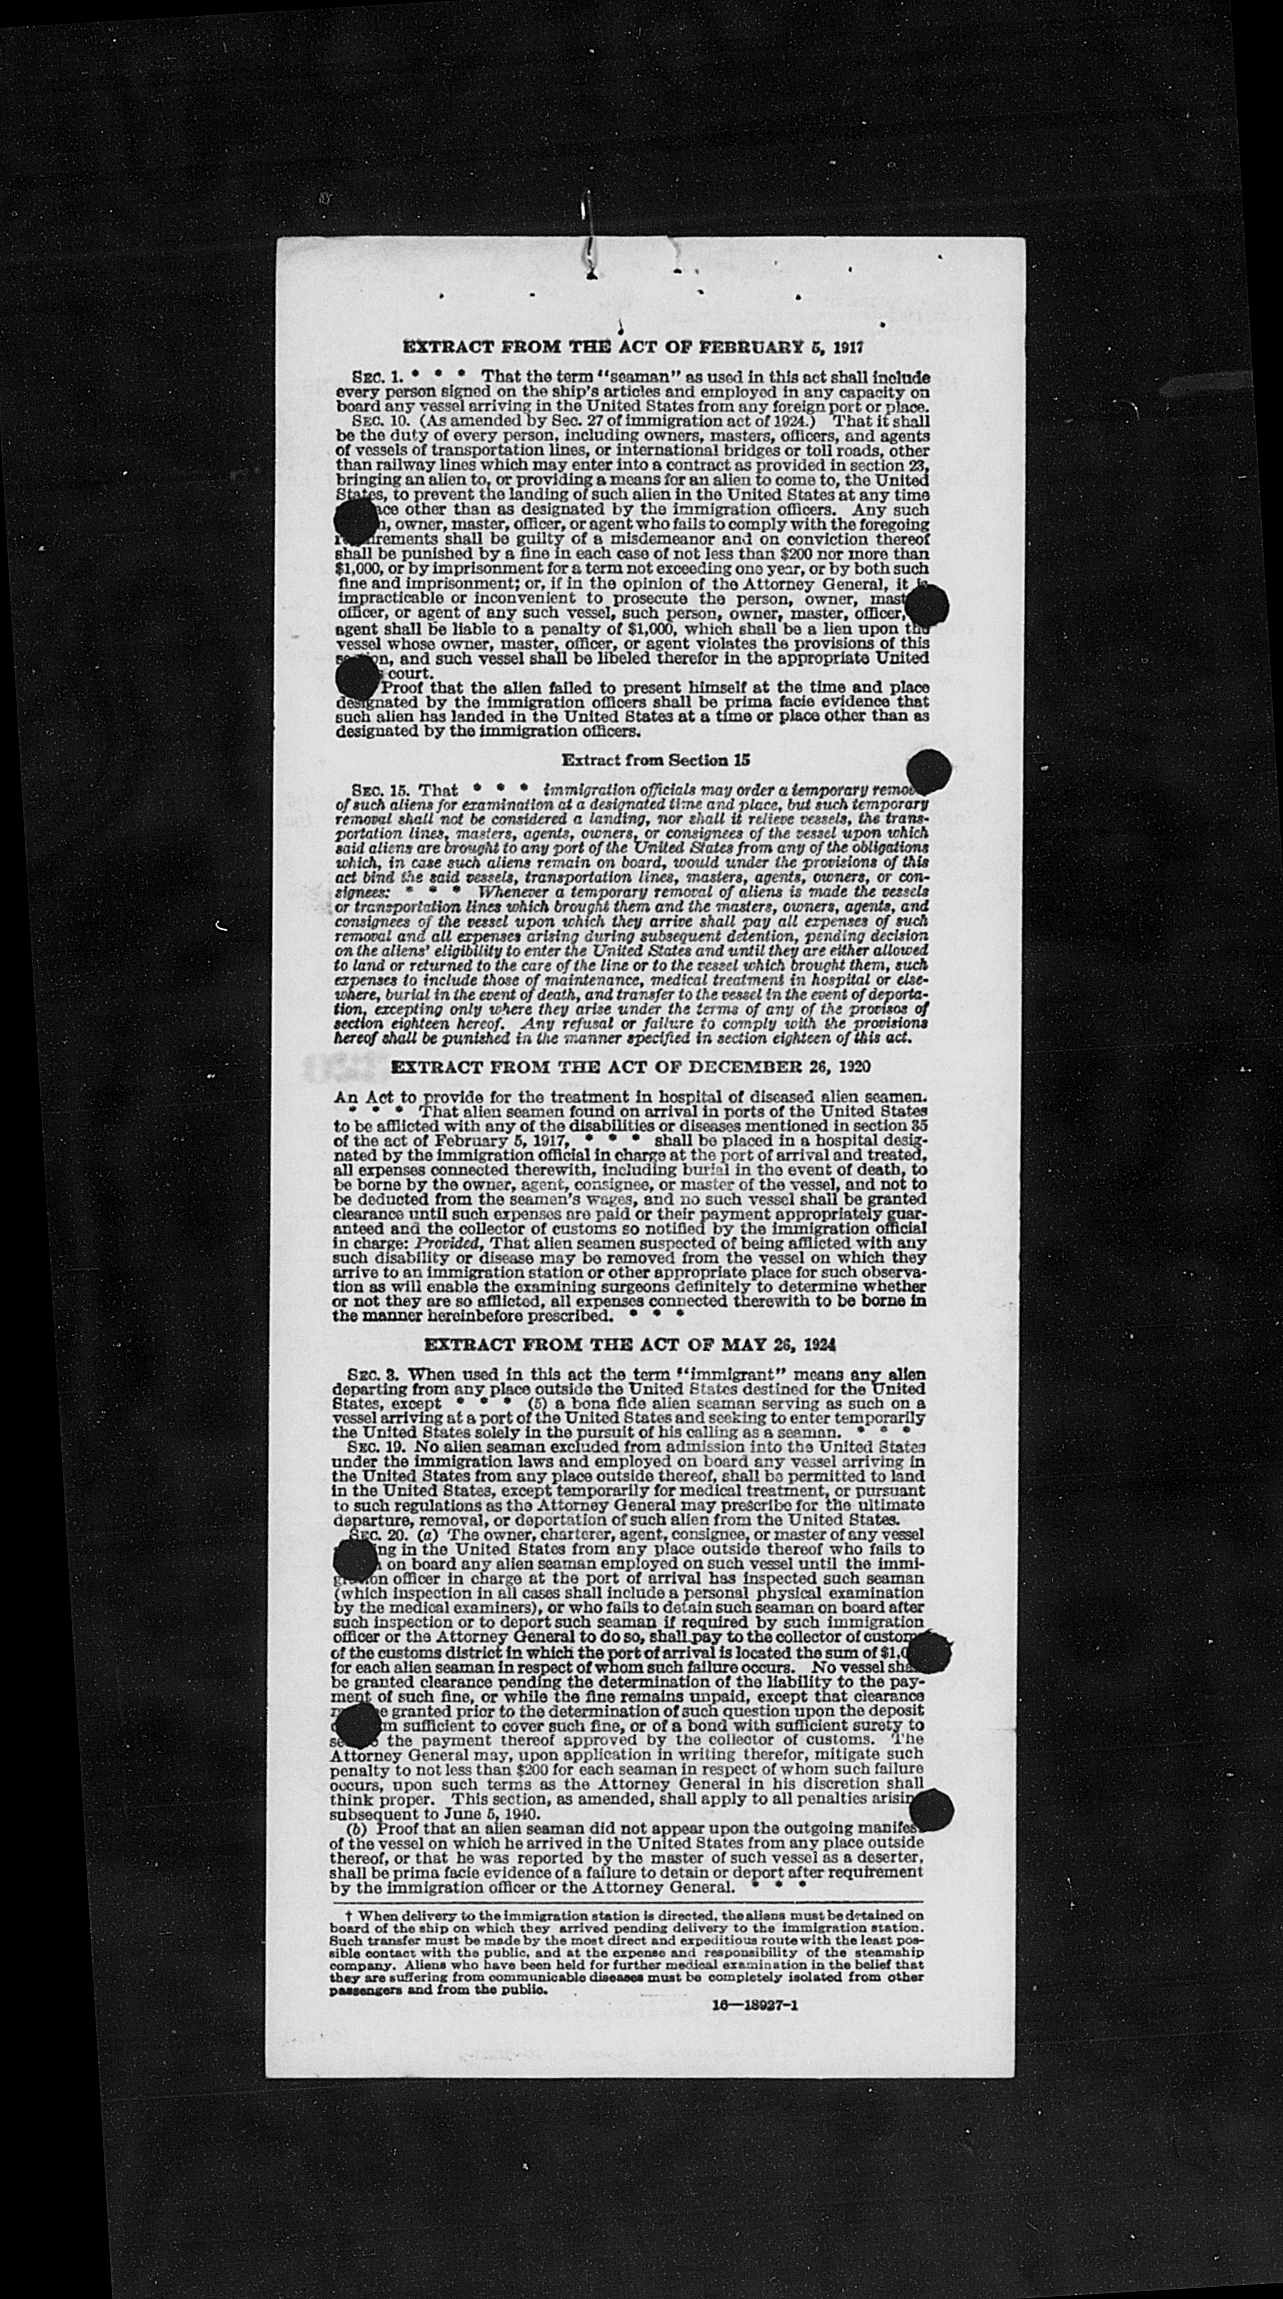 EXTRACT FROM THE ACT OF FEBRUARY 5, 1917
SEC. 1. * * * That the term "seaman" as used in this act shall include
every person signed on the ship's articles and employed in any capacity on
board any vessel arriving in the United States from any foreign port or place.
SEC. 10. (As amended by Sec. 27 of immigration act of 1924.) That it shall
be the duty of every person, including owners, masters, officers, and agents
of vessels of transportation lines, or international bridges or toll roads, other
than railway lines which may enter into a contract as provided in section 23,
bringing an alien to, or providing a means for an alien to come to, the United
States, to prevent the landing of such alien in the United States at any time
ace other than as designated by the immigration officers. Any such
n, owner, master, officer, or agent who fails to comply with the foregoing
requirements shall be guilty of a misdemeanor and on conviction thereof
shall be punished by a fine in each case of not less than $200 nor more than
$1,000, or by imprisonment for a term not exceeding one year, or by both such
fine and imprisonment; or, if in the opinion of the Attorney General, it is
impracticable or inconvenient to prosecute the person, owner, mast
officer, or agent of any such vessel, such person, owner, master, officer,
agent shall be liable to a penalty of $1,000, which shall be a lien upon the
vessel whose owner, master, officer, or agent violates the provisions of this
section, and such vessel shall be libeled therefor in the appropriate United
court.
Proof that the alien failed to present himself at the time and place
designated by the immigration officers shall be prima facie evidence that
such alien has landed in the United States at a time or place other than as
designated by the immigration officers.
Extract from Section 15
SEC. 15. That * * * immigration officials may order a temporary remov
of such aliens for examination at a designated time and place, but such temporary
removal shall not be considered a landing, nor shall it relieve vessels, the trans-
portation lines, masters, agents, owners, or consignees of the vessel upon which
said aliens are brought to any port of the United States from any of the obligations
which, in case such aliens remain on board, would under the provisions of this
act bind the said vessels, transportation lines, masters, agents, owners, or con-
signees: * * * Whenever a temporary removal of aliens is made the vessels
or transportation lines which brought them and the masters, owners, agents, and
consignees of the vessel upon which they arrive shall pay all expenses of such
removal and all expenses arising during subsequent detention, pending decision
on the aliens' eligibility to enter the United States and until they are either allowed
to land or returned to the care of the line or to the vessel which brought them, such
expenses to include those of maintenance, medical treatment in hospital or else-
where, burial in the event of death, and transfer to the vessel in the event of deporta-
tion, excepting only where they arise under the terms of any of the provisos of
section eighteen hereof. Any refusal or failure to comply with the provisions
hereof shall be punished in the manner specified in section eighteen of this act.
EXTRACT FROM THE ACT OF DECEMBER 26, 1920
An Act to provide for the treatment in hospital of diseased alien seamen.
* * * That alien seamen found on arrival in ports of the United States
to be afflicted with any of the disabilities or diseases mentioned in section 35
of the act of February 5, 1917, * * * shall be placed in a hospital desig-
nated by the immigration official in charge at the port of arrival and treated,
all expenses connected therewith, including burial in the event of death, to
be borne by the owner, agent, consignee, or master of the vessel, and not to
be deducted from the seamen's wages, and no such vessel shall be granted
clearance until such expenses are paid or their payment appropriately guar-
anteed and the collector of customs so notified by the immigration official
in charge: Provided, That alien seamen suspected of being afflicted with any
such disability or disease may be removed from the vessel on which they
arrive to an immigration station or other appropriate place for such observa-
tion as will enable the examining surgeons definitely to determine whether
or not they are so afflicted, all expenses connected therewith to be borne in
the manner hereinbefore prescribed. * * *
EXTRACT FROM THE ACT OF MAY 26, 1924
SEC. 3. When used in this act the term "immigrant" means any alien
departing from any place outside the United States destined for the United
States, except * * * (5) a bona fide alien seaman serving as such on a
vessel arriving at a port of the United States and seeking to enter temporarily
the United States solely in the pursuit of his calling as a seaman. * * *
SEC. 19. No alien seaman excluded from admission into the United States
under the immigration laws and employed on board any vessel arriving in
the United States from any place outside thereof, shall be permitted to land
in the United States, except temporarily for medical treatment, or pursuant
to such regulations as the Attorney General may prescribe for the ultimate
departure, removal, or deportation of such alien from the United States.
SEC. 20. (a) The owner, charterer, agent, consignee, or master of any vessel
ng in the United States from any place outside thereof who fails to
on board any alien seaman employed on such vessel until the immi-
gration officer in charge at the port of arrival has inspected such seaman
(which inspection in all cases shall include a personal physical examination
by the medical examiners), or who fails to detain such seaman on board after
such inspection or to deport such seaman if required by such immigration
officer or the Attorney General to do so, shall pay to the collector of customs
of the customs district in which the port of arrival is located the sum of $1,0
for each alien seaman in respect of whom such failure occurs. No vessel shall
be granted clearance pending the determination of the liability to the pay-
ment of such fine, or while the fine remains unpaid, except that clearance
e granted prior to the determination of such question upon the deposit
m sufficient to cover such fine, or of a bond with sufficient surety to
the payment thereof approved by the collector of customs. The
Attorney General may, upon application in writing therefor, mitigate such
penalty to not less than $200 for each seaman in respect of whom such failure
occurs, upon such terms as the Attorney General in his discretion shall
think proper. This section, as amended, shall apply to all penalties arisin
subsequent to June 5, 1940.
(b) Proof that an alien seaman did not appear upon the outgoing manifest
of the vessel on which he arrived in the United States from any place outside
thereof, or that he was reported by the master of such vessel as a deserter,
shall be prima facie evidence of a failure to detain or deport after requirement
by the immigration officer or the Attorney General. * * *
† When delivery to the immigration station is directed, the aliens must be detained on
board of the ship on which they arrived pending delivery to the immigration station.
Such transfer must be made by the most direct and expeditious route with the least pos-
sible contact with the public, and at the expense and responsibility of the steamship
company. Aliens who have been held for further medical examination in the belief that
they are suffering from communicable diseases must be completely isolated from other
passengers and from the public.
16—18927-1